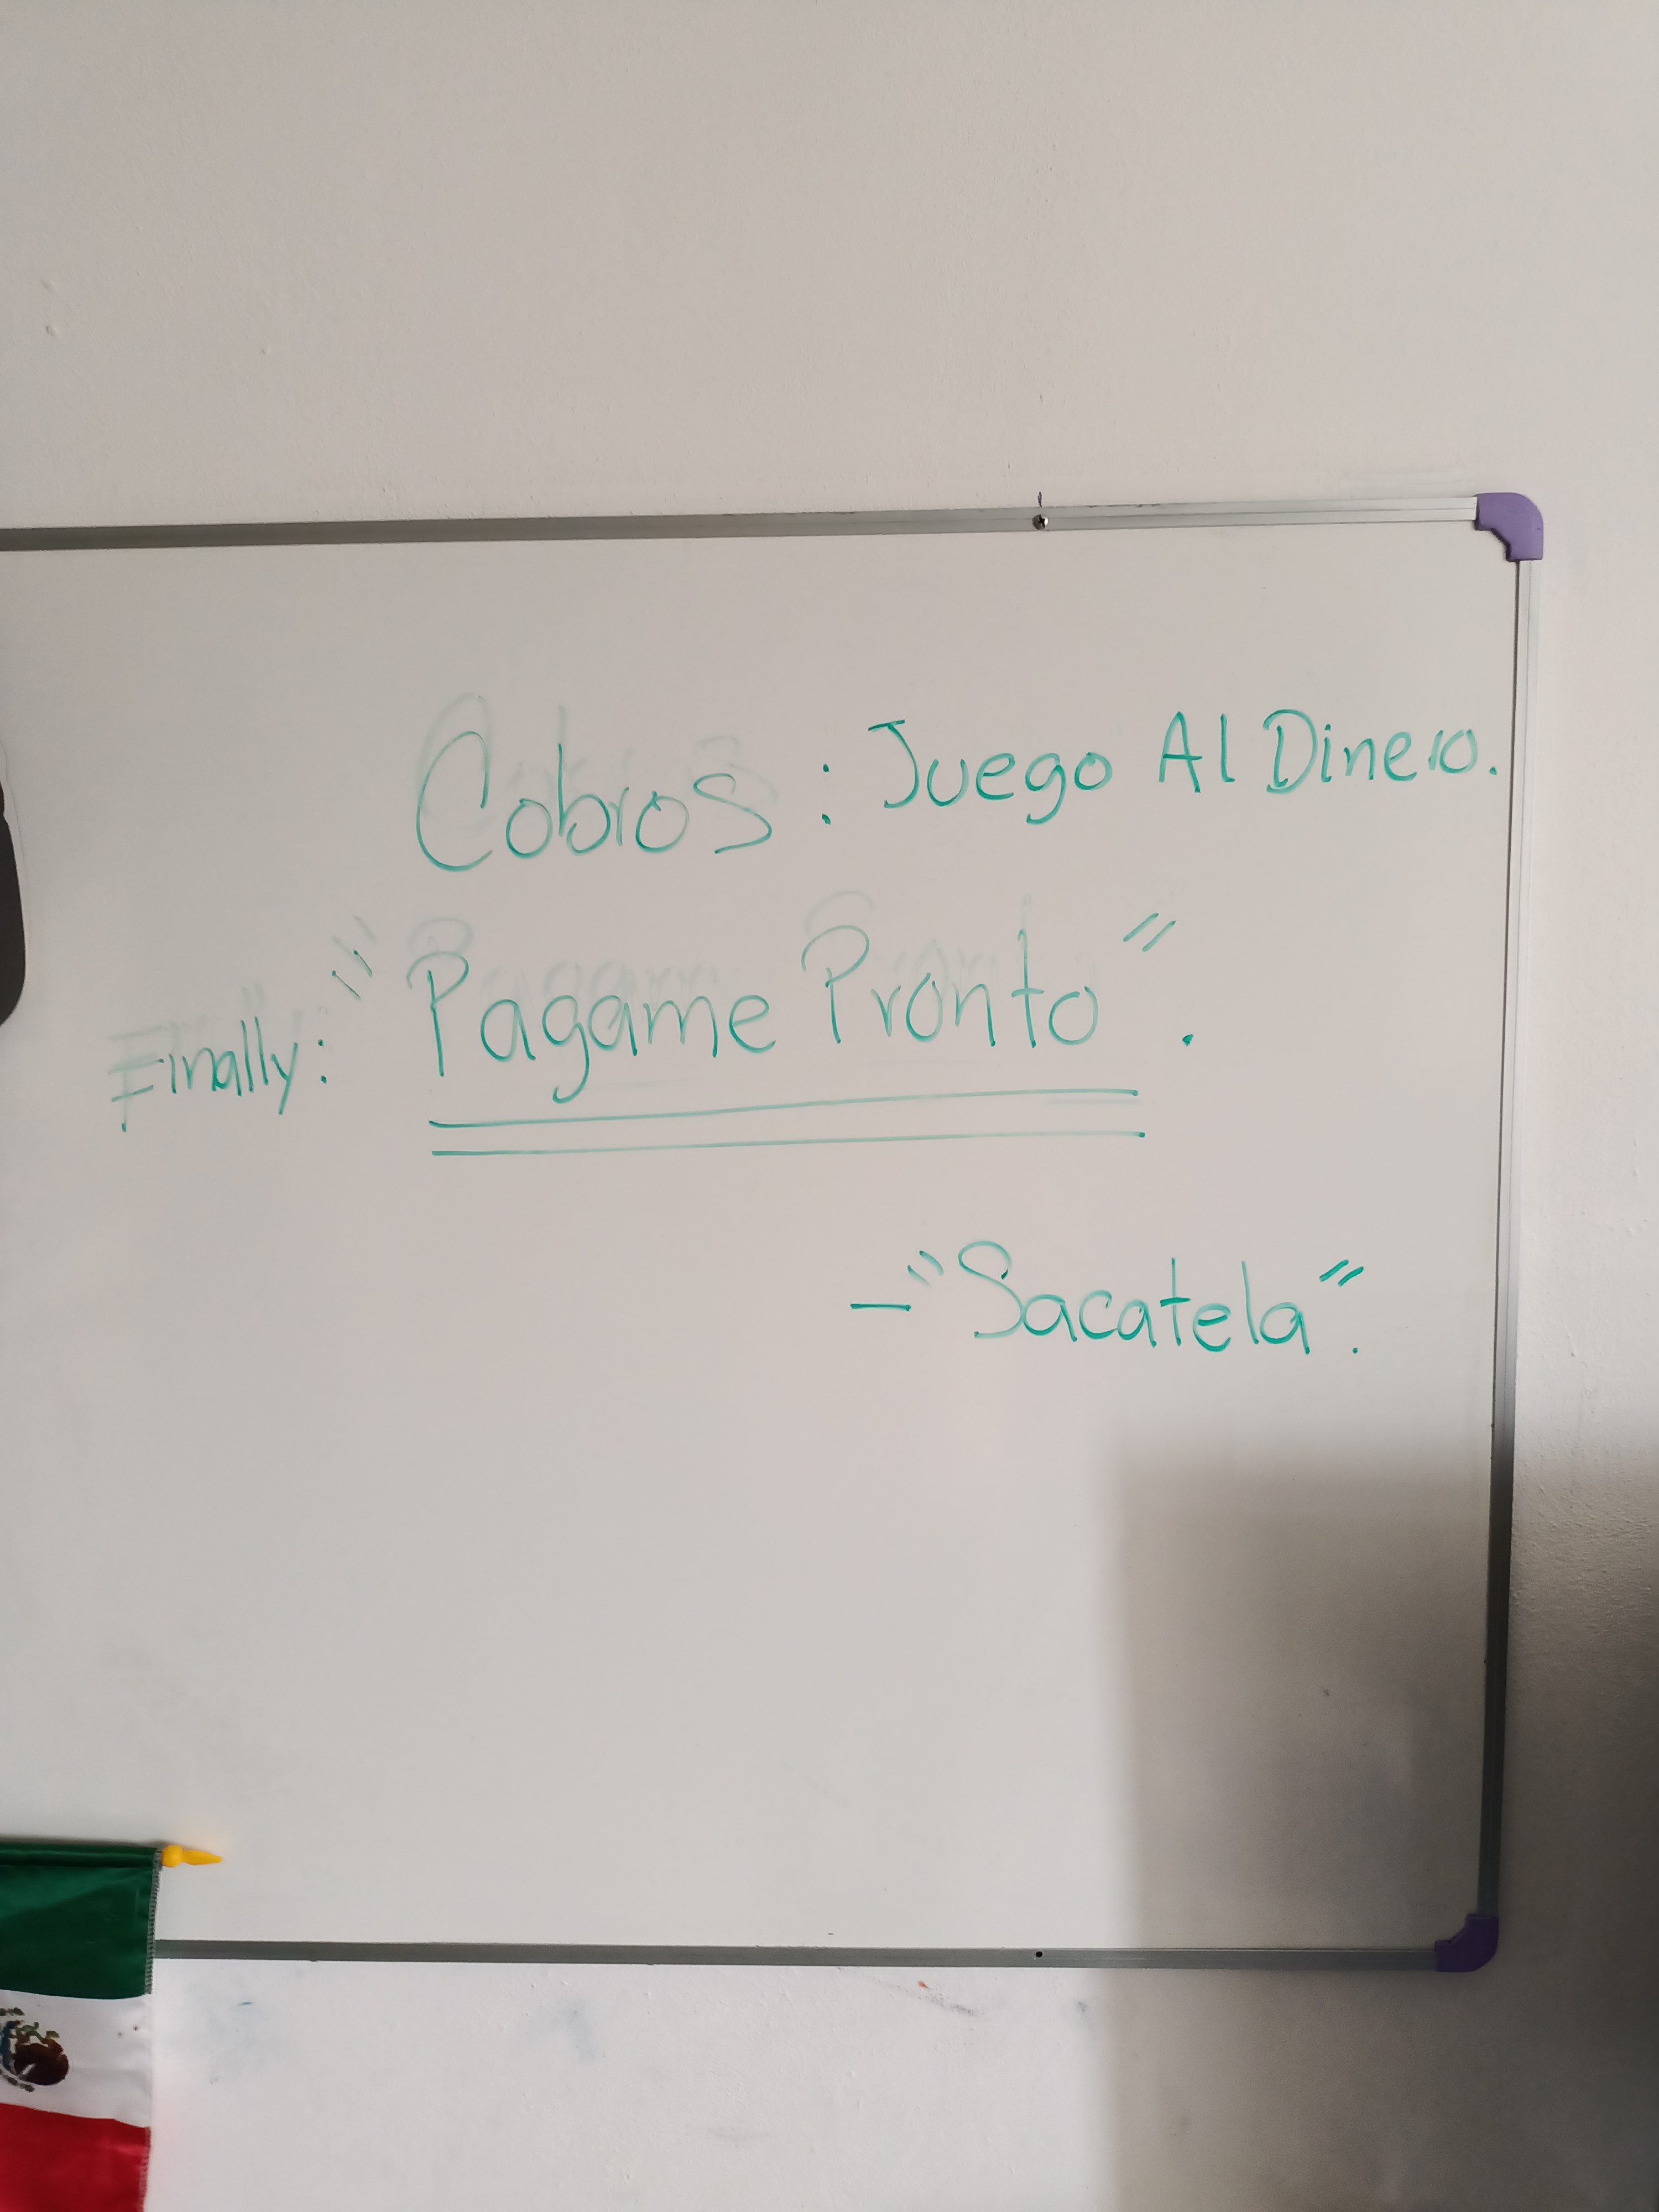 Cobros : Juego Al Dinero.
Finally: "Pagame Pronto".
- "Sacatela".